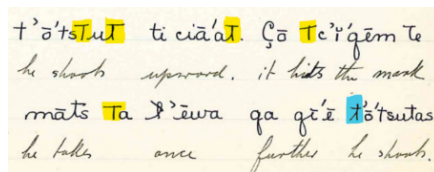 t'ō'tsTuT ti ciā'aT. Çō Tc'ī'qēm te
he shoots upward. it hits the mark
māts Ta ł'ēwa qa qī'ē t'ō'tsutas
he takes once further he shoots.